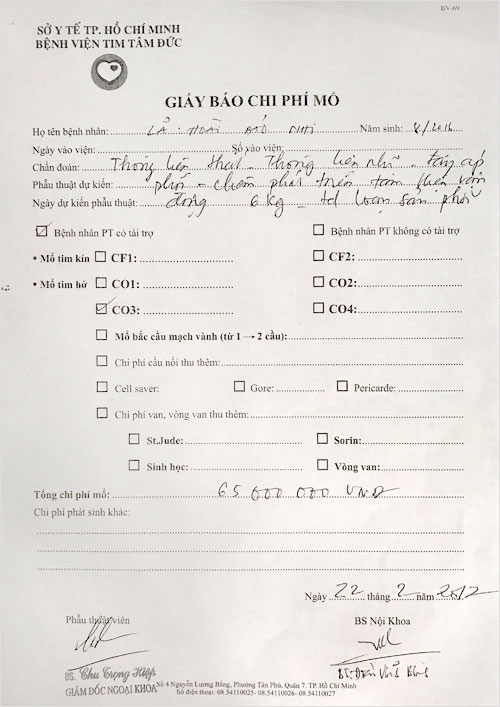 BV-69
SỞ Y TẾ TP. HỒ CHÍ MINH
BỆNH VIỆN TIM TÂM ĐỨC
GIẤY BÁO CHI PHÍ MỔ
Họ tên bệnh nhân: LÃ HOÀI BẢO NHI Năm sinh: 4/2016
Ngày vào viện: Số vào viện:
Chẩn đoán: Thông liên thất - Thông liên nhĩ - tăng áp
Phẫu thuật dự kiến: phổi - chậm phát triển tâm thần vận
Ngày dự kiến phẫu thuật: động 6 Kg - td loạn sản phổi
Bệnh nhân PT có tài trợ Bệnh nhân PT không có tài trợ
▪ Mổ tim kín CF1: CF2:
▪ Mổ tim hở CO1: CO2:
CO3: CO4:
Mổ bắc cầu mạch vành (từ 1 → 2 cầu):
Chi phí cầu nối thu thêm:
Cell saver: Gore: Pericarde:
Chi phí van, vòng van thu thêm:
St.Jude: Sorin:
Sinh học: Vòng van:
Tổng chi phí mổ: 65 000 000 VNĐ
Chi phí phát sinh khác:
Ngày 22 tháng 2 năm 2017
Phẫu thuật viên BS Nội Khoa
BS. Chu Trọng Hiệp
GIÁM ĐỐC NGOẠI KHOA
Số 4 Nguyễn Lương Bằng, Phường Tân Phú, Quận 7. TP. Hồ Chí Minh
Số điện thoại: 08.54110025- 08.54110026- 08.54110027